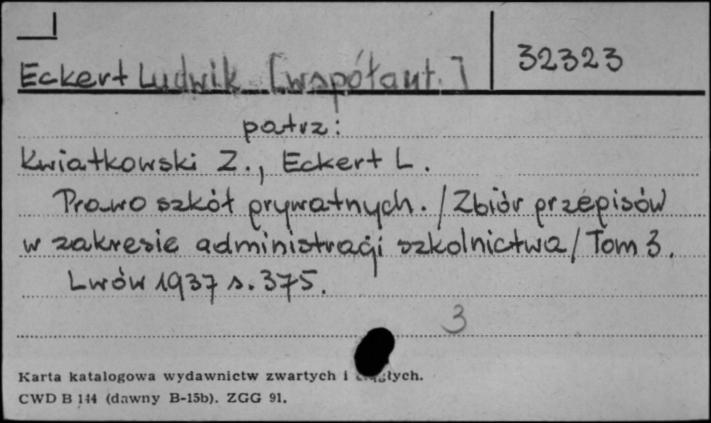 Eckert Ludwik [współaut.]
32323
patrz:
Kwiatkowski Z., Eckert L.
Prawo szkół prywatnych. /Zbiór przepisów
w zakresie administracji szkolnictwa/ Tom 3.
Lwów 1937 s. 375.
3
Karta katalogowa wydawnictw zwartych i ciągłych.
CWD B 144 (dawny B-15b). ZGG 91.